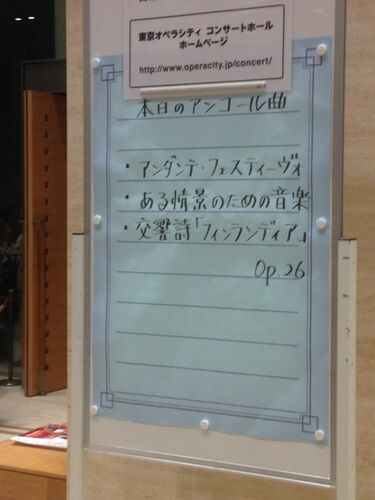 東京オペラシティ コンサートホール
ホームページ
http://www.operacity.jp/concert/
本日のアンコール曲
・アンダンテ・フェスティーヴォ
・ある情景のための音楽
・交響詩「フィンランディア」
Op.26